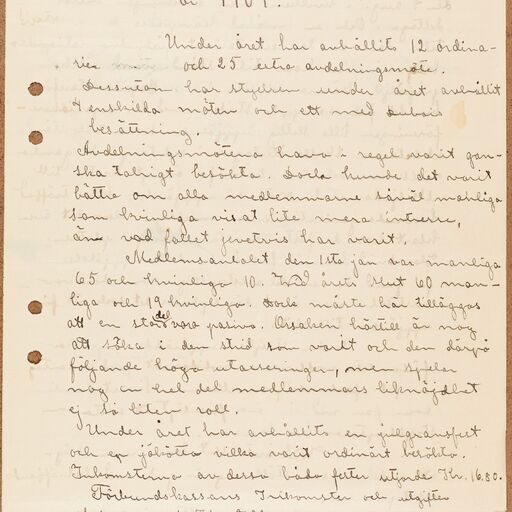 år 1909.
Under året har avhållits 12 ordina-
rie och 25 extra avdelningsmöte.
Dessutom har styrelsen under året avhållit
4 enskilda möten och ett med Dubois
besättning.
Avdelningsmötena hava i regel varit gan-
ska talrigt besökta. Dock kunde det varit
bättre om alla medlemmarne såväl manliga
som kvinliga visat lite mera intresse,
än vad fallet jevetvis har varit.
Medlemsantalet den 1sta jan var manliga
65 och kvinliga 10. Ved årets slut 60 man-
liga och 19 kvinliga. Dock måste här tilläggas
att en stor del vora pasiva. Orsaken härtill är nog
att söka i den strid som varit och den därpå
följande höga utaxeringen, men spelar
nog en hel del medlemmars liknöjdhet
ej så liten roll.
Under året har avhållits en julgransfest
och en vilka varit ordinärt besökta.
Inkomsterna av dessa båda fester utjorde Kr. 16.80.
Förbundskassans Inkomster och utgifter